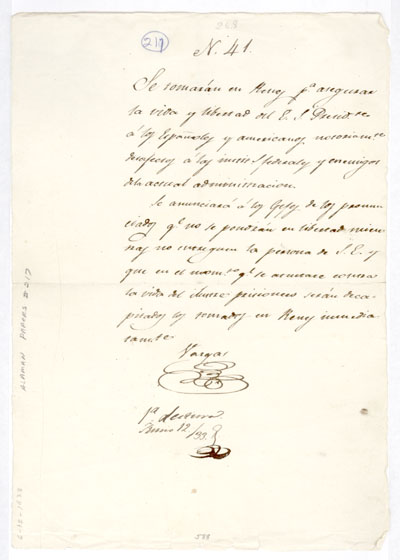 217
N. 41.
Se tomarán en Reneg pª asegurar
la vida y libertad del E. S. Presid.te
á los Españoles y americanos notoriam.te
desafectos á las instit.s federales y enemigos
de la actual administracion.
Se anunciará á los Gefes de los pronun-
ciados q.e no se pondrán en libertad mien-
tras no entreguen la persona de S. E. y
que en el mom.to q.e se atentare contra
la vida del ilustre prisionero serán deca-
pitados los tomados en Reneg inmedia
tam.te
Vargas
Junio 12/33.
ALAMAN PAPERS # 217
6-12-1833